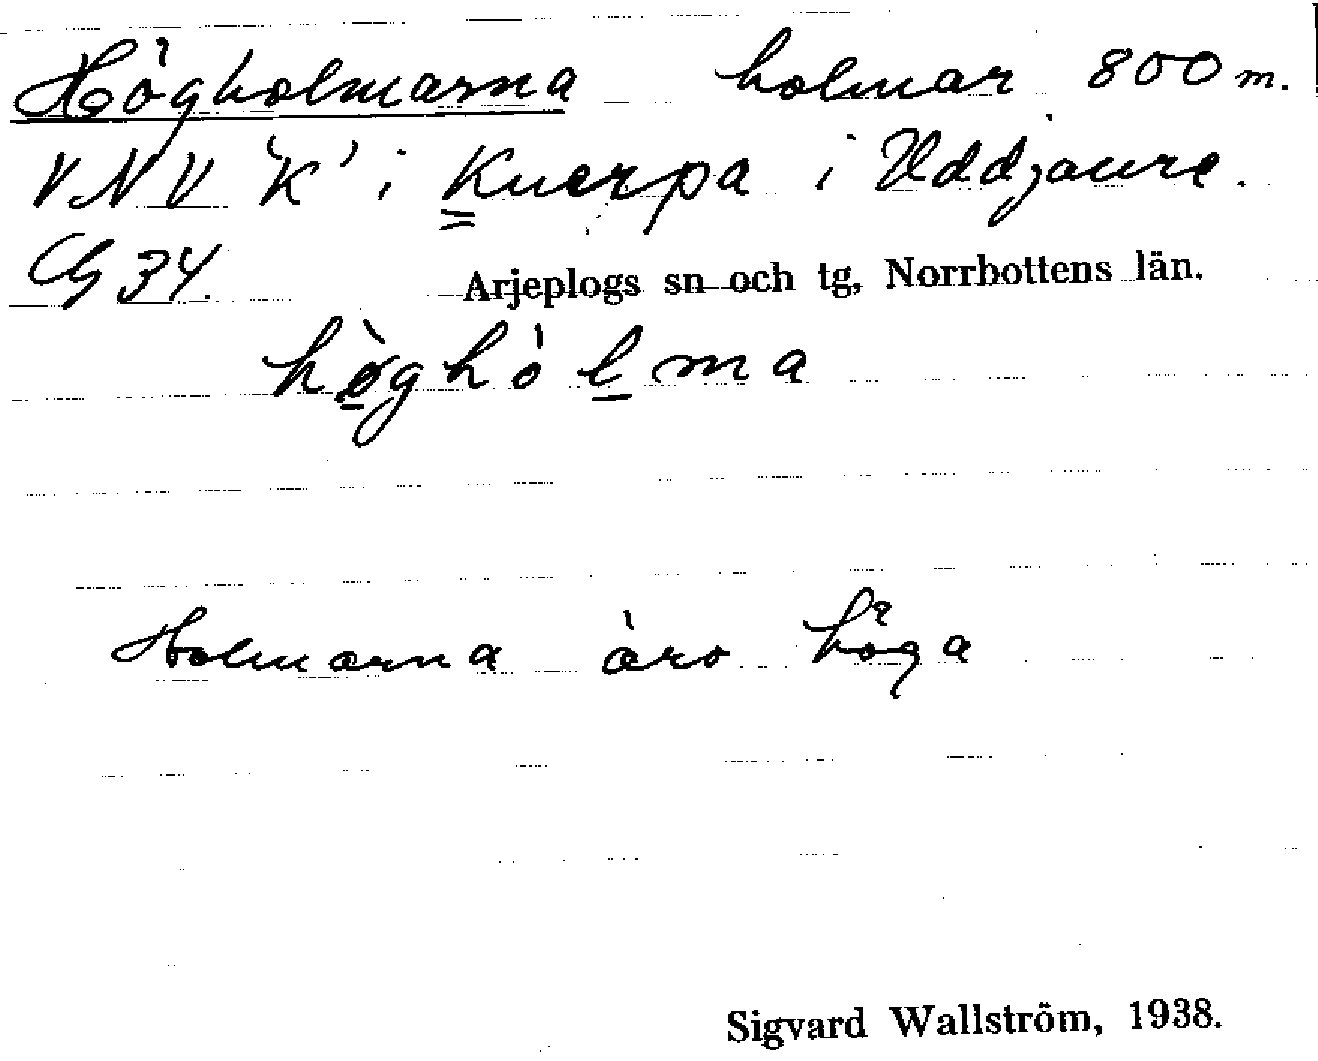 Högholmarna holmar 800 m.
VNV 'K' i Kuerpa i Uddjaure.
G 34. Arjeplogs sn och tg, Norrbottens län.
hø̀ghòlma
Holmarna äro höga
Sigvard Wallström, 1938.